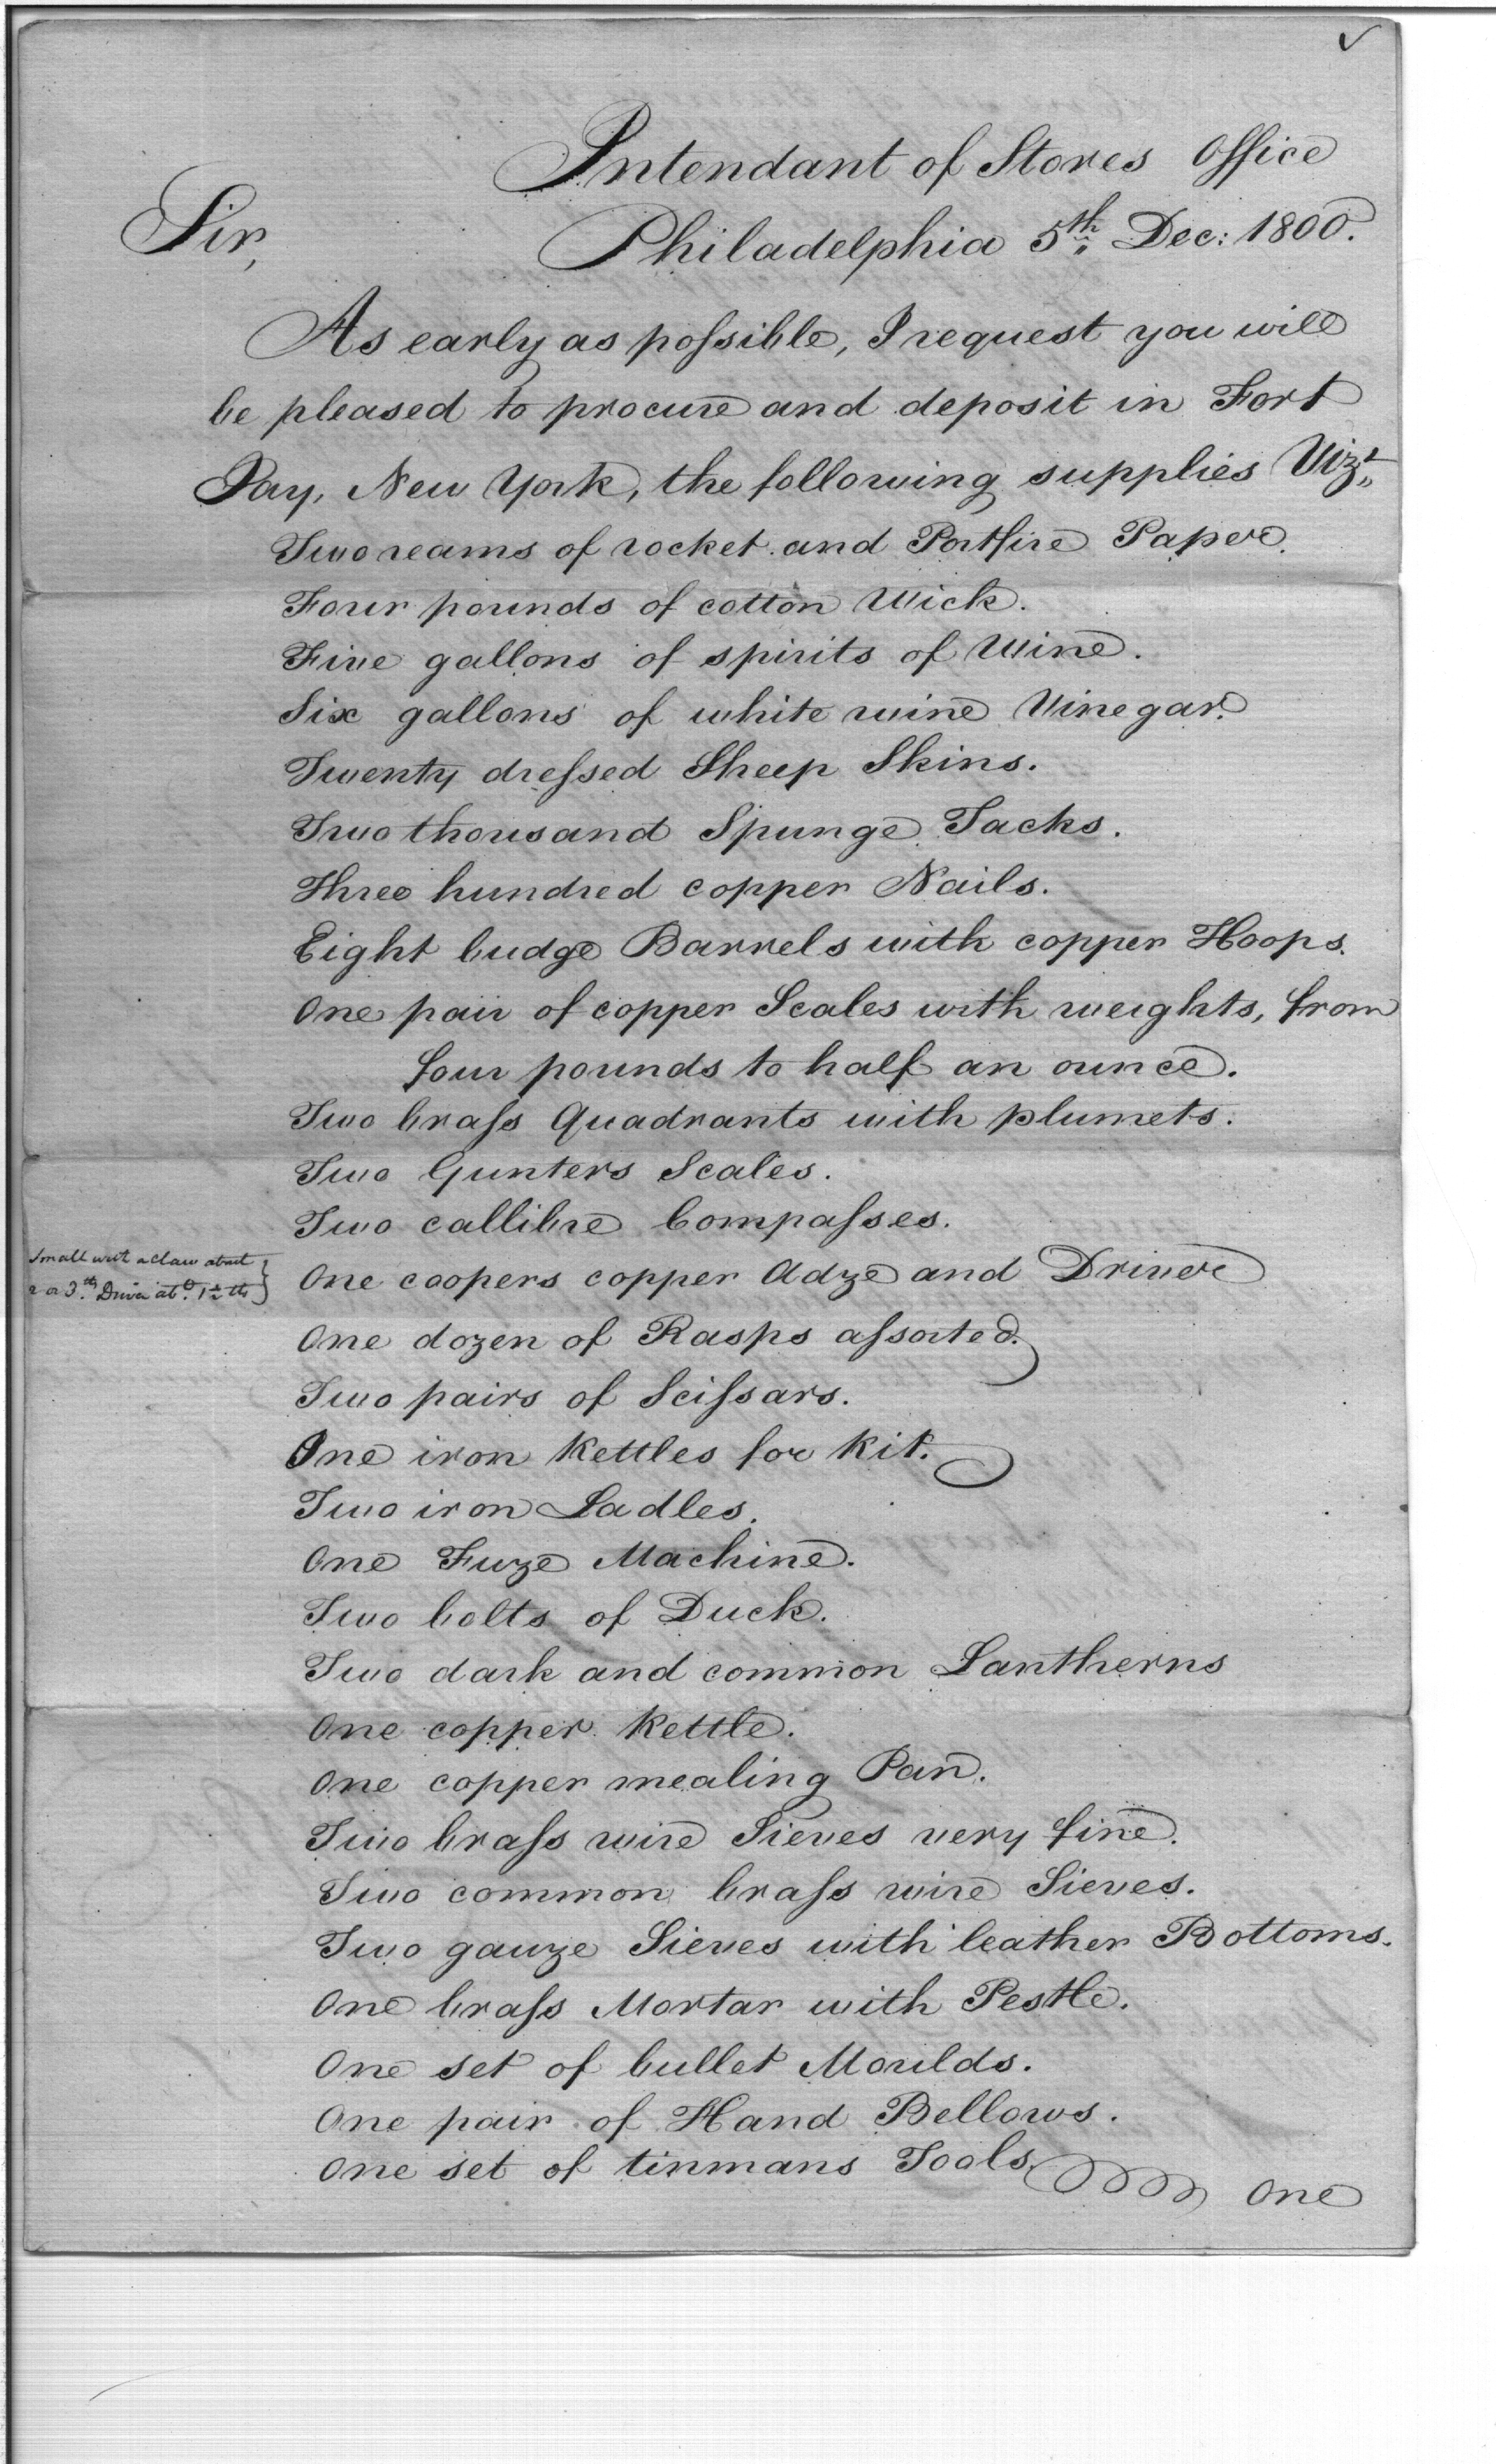 Intendant of Stores Office
Sir, Philadelphia 5th Dec: 1800.
As early as possible, I request you will
be pleased to procure and deposit in Fort
Jay, New York, the following supplies Vizt
Two reams of rocket and Portfire Paper.
Four pounds of cotton Wick.
Five gallons of spirits of Wine.
Six gallons of white wine Vinegar.
Twenty dressed Sheep Skins.
Two thousand Spunge Tacks.
Three hundred copper Nails.
Eight budge Barrels with copper Hoops.
One pair of copper Scales with weights, from
four pounds to half an ounce.
Two brass Quadrants with plumets.
Two Gunters Scales.
Two callibre Compasses.
Small wt a Claw about
2 or 3 th Driver abt. 1½ th
One coopers copper Adze and Driver
One dozen of Rasps assorted.
Two pairs of Scissars.
One iron Kettles for Kit.
Two iron Ladles.
One Fuze Machine.
Two bolts of Duck.
Two dark and common Lantherns
One copper Kettle.
One copper mealing Pan.
Two brass wire Sieves very fine.
Two common brass wire Sieves.
Two gauze Sieves with leather Bottoms.
One brass Mortar with Pestle.
One set of bullet Moulds.
One pair of Hand Bellows.
One set of tinmans Tools
One